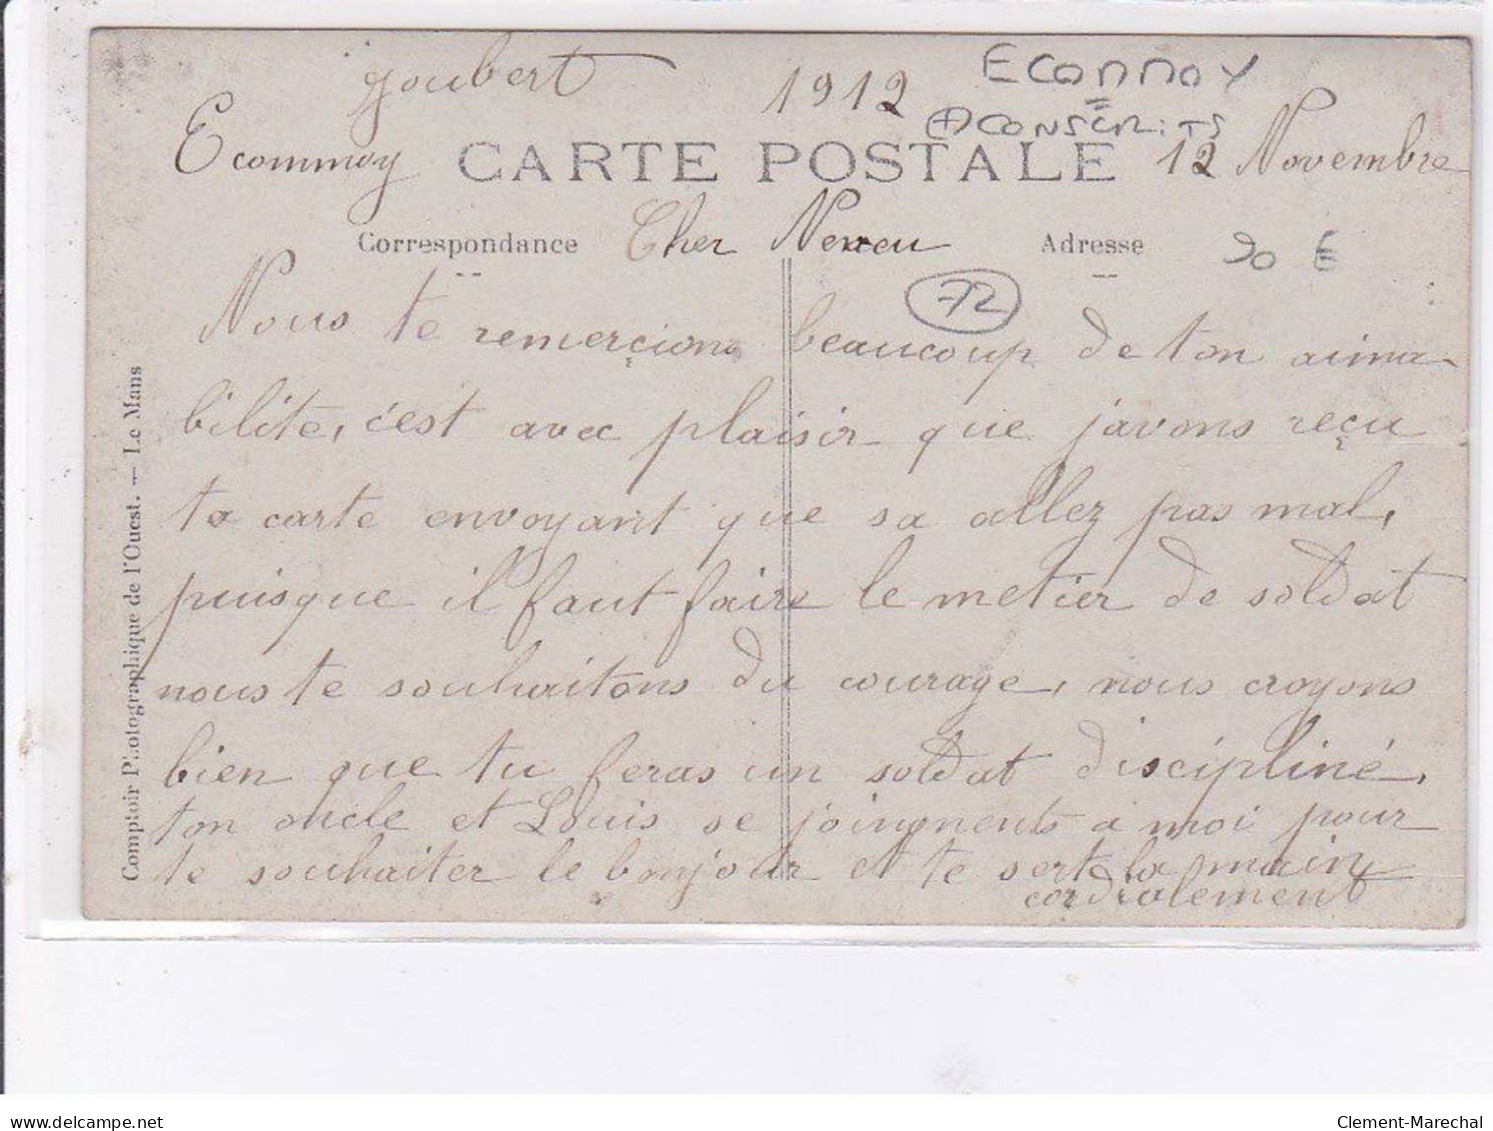 joubert
1912
ECOMMOY
CONSCRITS
Ecommoy CARTE POSTALE 12 Novembre
Correspondance Cher Neveu Adresse
90 €
72
Nous te remerçions beaucoup de ton aima-
bilité, c'est avec plaisir que j'avons reçu
ta carte envoyant que sa allez pas mal,
puisque il faut faire le metier de soldat
nous te souhaitons du courage, nous croyons
bien que tu feras un soldat discipliné,
ton oncle et Louis se joingnents a moi pour
te souhaiter le bonjour et te sert la main
cordialement
Comptoir Photographique de l'Ouest. — Le Mans
delcampe.net
Clement-Marechal